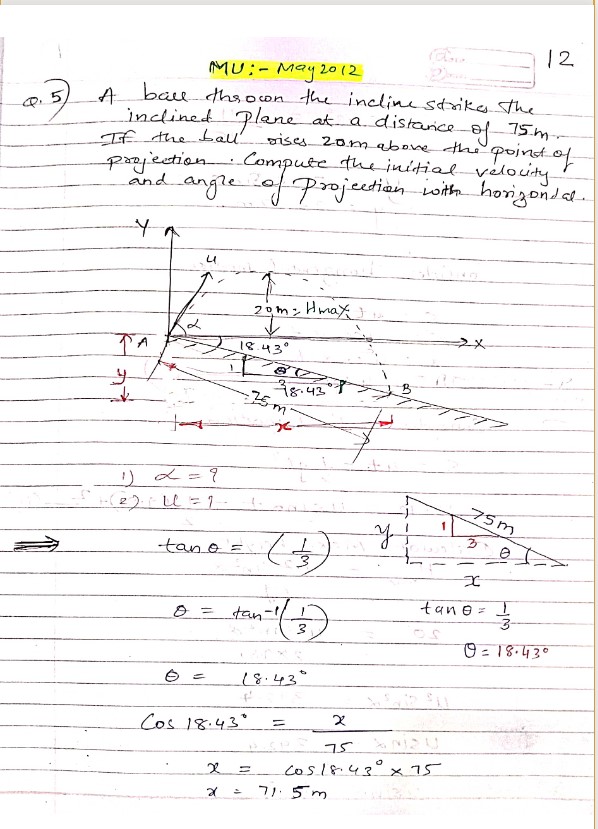 12
MU:- May 2012
Q.5) A ball thrown the incline strikes the
inclined plane at a distance of 75m.
If the ball rises 20m above the point of
projection. Compute the initial velocity
and angle of projection with horizondal.
Y
u
20m = Hmax
α
A
18.43°
x
y
1
θ
3
18.43°
B
75m
x
1) α = ?
(2) u = ?
75m
y
1
3
θ
x
⟹ tan θ = (1/3)
θ = tan-1(1/3)
tan θ = 1/3
θ = 18.43°
θ = 18.43°
Cos 18.43° = x/75
x = cos18.43° × 75
x = 71.5m